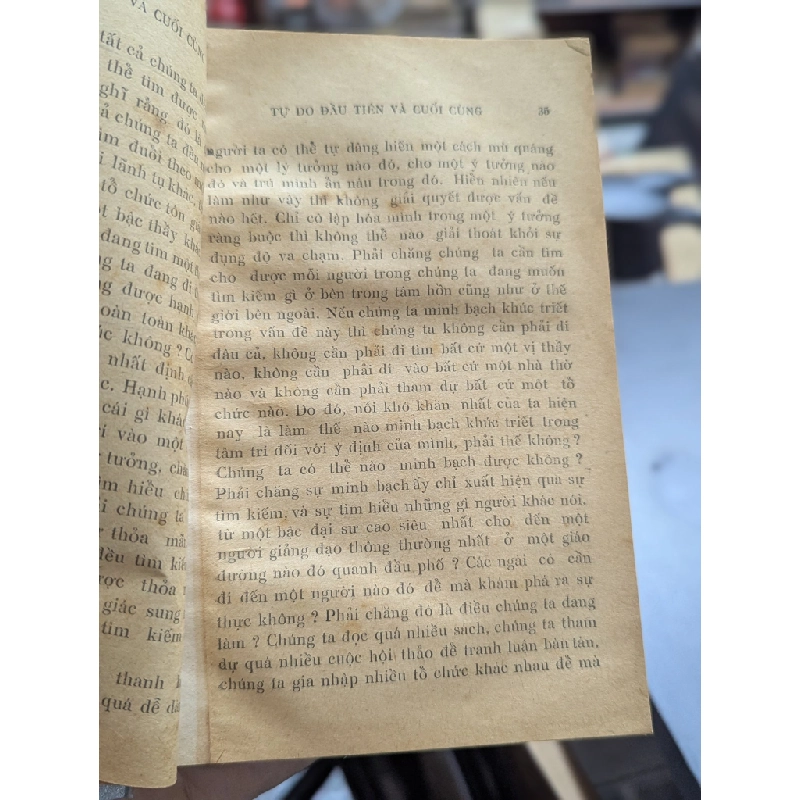 VÀ CUỐI CÙNG
tất cả chúng ta
thể tìm được
nghĩ rằng đó là
ả chúng ta đến
đuổi theo
lãnh tụ khác,
tổ chức tôn
bậc thầy khác
đang tìm một
ng ta đang đi
được hạnh
toàn khác
không ?
nhất định
c. Hạnh
cái gì khác
vào một
tư tưởng,
tìm hiểu
chúng ta
thỏa mãn
đều tìm
được thỏa
giác sung
tìm kiếm
thanh
quá dễ
TỰ DO ĐẦU TIÊN VÀ CUỐI CÙNG 35
người ta có thể tự dâng hiến một cách mù quáng
cho một lý tưởng nào đó, cho một ý tưởng nào
đó và trú mình ẩn náu trong đó. Hiển nhiên nếu
làm như vậy thì không giải quyết được vấn đề
nào hết. Chỉ cô lập hóa mình trong một ý tưởng
ràng buộc thì không thể nào giải thoát khỏi sự
đụng độ va chạm. Phải chăng chúng ta cần tìm
cho được mỗi người trong chúng ta đang muốn
tìm kiếm gì ở bên trong tâm hồn cũng như ở thế
giới bên ngoài. Nếu chúng ta minh bạch khúc triết
trong vấn đề này thì chúng ta không cần phải đi
đâu cả, không cần phải đi tìm bất cứ một vị thầy
nào, không cần phải đi vào bất cứ một nhà thờ
nào và không cần phải tham dự bất cứ một tổ
chức nào. Do đó, nỗi khó khăn nhất của ta hiện
nay là làm thế nào minh bạch khúc triết trong
tâm trí đối với ý định của mình, phải thế không ?
Chúng ta có thể nào minh bạch được không ?
Phải chăng sự minh bạch ấy chỉ xuất hiện qua sự
tìm kiếm, và sự tìm hiểu những gì người khác nói,
từ một bậc đại sư cao siêu nhất cho đến một
người giảng đạo thông thường nhất ở một giáo
đường nào đó quanh đầu phố ? Các ngài có cần
đi đến một người nào đó để mà khám phá ra sự
thực không ? Phải chăng đó là điều chúng ta đang
làm ? Chúng ta đọc quá nhiều sách, chúng ta tham
dự quá nhiều cuộc hội thảo để tranh luận bàn tán,
chúng ta gia nhập nhiều tổ chức khác nhau để mà